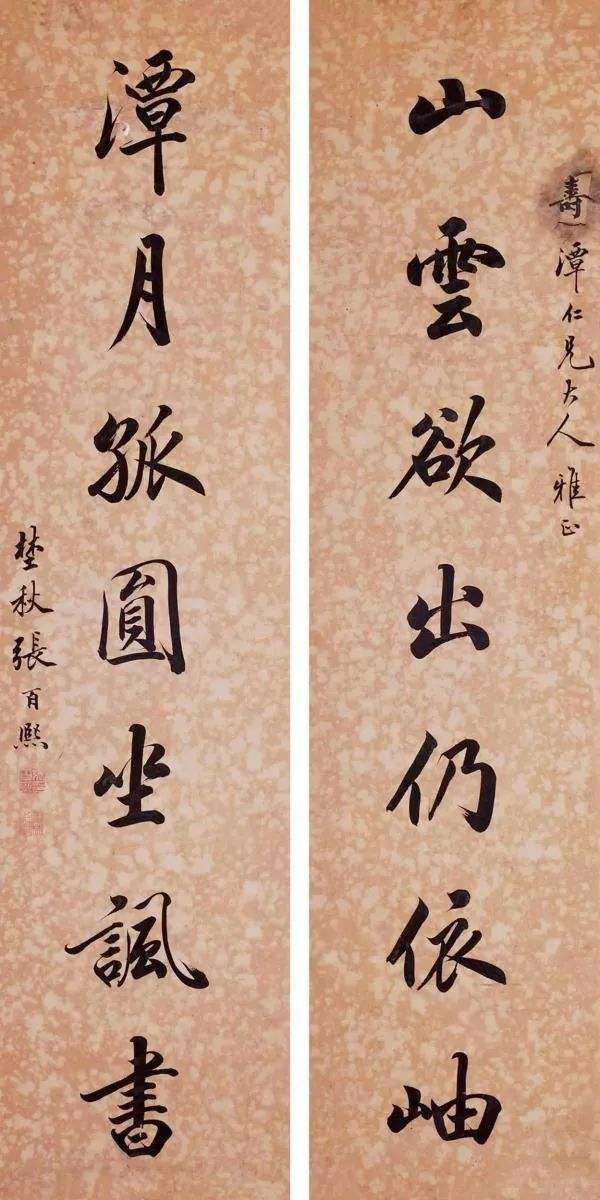 壽潭仁兄大人雅正
山雲欲出仍依岫
潭月孤圓坐諷書
埜秋張百熙